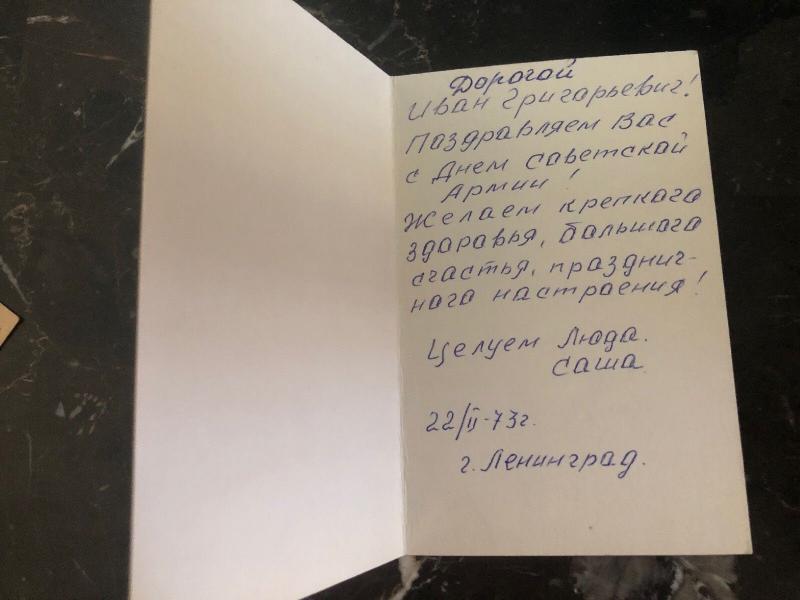 Дорогой
Иван Григарьевич!
Поздравляем Вас
с Днем Саветской
Армии!
Желаем крепкого
здаравья, бальшого
счастья, празднич-
ного настраения!
Целуем Люда.
Саша
22/II-73г.
г. Ленинград.